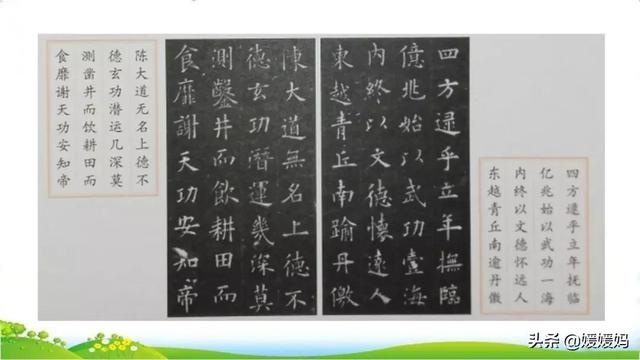 四方逮乎立年抚临
亿兆始以武功一海
内终以文德怀远人
东越青丘南逾丹徼
四方逮乎立年撫臨
億兆始以武功壹海
內終以文德懷遠人
東越青丘南踰丹儌
陳大道無名上德不
德玄功潛運幾深莫
測鑿井而飲耕田而
食靡謝天功安知帝
陈大道无名上德不
德玄功潜运几深莫
测凿井而饮耕田而
食靡谢天功安知帝
头条 @媛媛妈